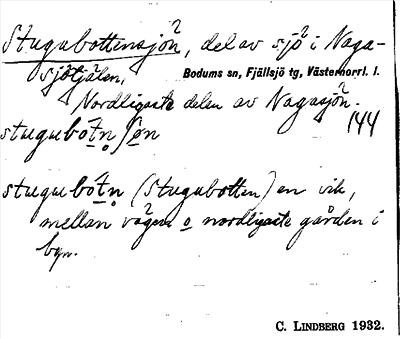 Stugubottensjön, del av sjö i Naga-
sjötjälen,
Bodums sn, Fjällsjö tg, Västernorrl. l.
Nordligaste delen av Nagasjön.
144
stugubót̲n̥ʃo̲n
stugubót̲n̥ (Stugubotten) en vik,
mellan vägen o nordligaste gården i
byn.
C. LINDBERG 1932.